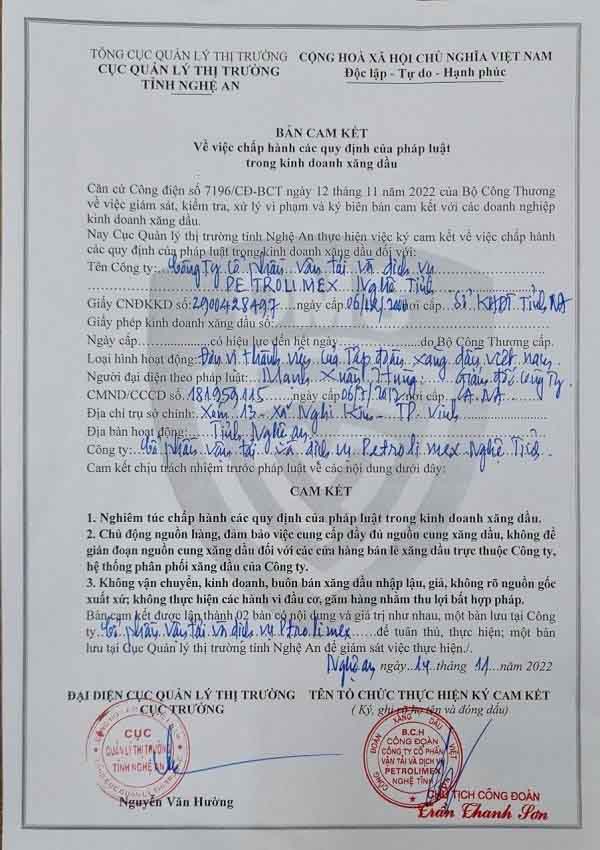 TỔNG CỤC QUẢN LÝ THỊ TRƯỜNG
CỤC QUẢN LÝ THỊ TRƯỜNG
TỈNH NGHỆ AN
CỘNG HOÀ XÃ HỘI CHỦ NGHĨA VIỆT NAM
Độc lập - Tự do - Hạnh phúc
BẢN CAM KẾT
Về việc chấp hành các quy định của pháp luật
trong kinh doanh xăng dầu
Căn cứ Công điện số 7196/CĐ-BCT ngày 12 tháng 11 năm 2022 của Bộ Công Thương
về việc giám sát, kiểm tra, xử lý vi phạm và ký biên bản cam kết với các doanh nghiệp
kinh doanh xăng dầu.
Nay Cục Quản lý thị trường tỉnh Nghệ An thực hiện việc ký cam kết về việc chấp hành
các quy định của pháp luật trong kinh doanh xăng dầu đối với:
Tên Công ty: Công ty Cổ phần vận tải và dịch vụ
PETROLIMEX Nghệ Tĩnh
Giấy CNĐKKD số: 2900428497 ngày cấp 06/12/2000 nơi cấp Sở KHĐT Tỉnh NA
Giấy phép kinh doanh xăng dầu số:
Ngày cấp............có hiệu lực đến hết ngày............do Bộ Công Thương cấp.
Loại hình hoạt động: Đơn vị thành viên của Tập đoàn xăng dầu việt nam
Người đại diện theo pháp luật: Manh Xuân Hùng. Giám đốc Công Ty.
CMND/CCCD số 181959115 ngày cấp 06/7/2012 nơi cấp CA.NA
Địa chỉ trụ sở chính: Xóm 13 - xã Nghi Kim - TP. Vinh
Địa bàn hoạt động: Tỉnh Nghệ an
Công ty: Cổ phần vận tải và dịch vụ Petrolimex Nghệ Tĩnh.
Cam kết chịu trách nhiệm trước pháp luật về các nội dung dưới đây:
CAM KẾT
1. Nghiêm túc chấp hành các quy định của pháp luật trong kinh doanh xăng dầu.
2. Chủ động nguồn hàng, đảm bảo việc cung cấp đầy đủ nguồn cung xăng dầu, không để
gián đoạn nguồn cung xăng dầu đối với các cửa hàng bán lẻ xăng dầu trực thuộc Công ty,
hệ thống phân phối xăng dầu của Công ty.
3. Không vận chuyển, kinh doanh, buôn bán xăng dầu nhập lậu, giả, không rõ nguồn gốc
xuất xứ; không thực hiện các hành vi đầu cơ, găm hàng nhằm thu lợi bất hợp pháp.
Bản cam kết được lập thành 02 bản có nội dung và giá trị như nhau, một bản lưu tại Công
ty Cổ phần Vận tải và dịch vụ Petrolimex để tuân thủ, thực hiện; một bản
lưu tại Cục Quản lý thị trường tỉnh Nghệ An để giám sát việc thực hiện./.
Nghệ an ngày 14 tháng 11 năm 2022
ĐẠI DIỆN CỤC QUẢN LÝ THỊ TRƯỜNG
CỤC TRƯỞNG
CỤC
QUẢN LÝ THỊ TRƯỜNG
TỈNH NGHỆ AN
Nguyễn Văn Hường
TÊN TỔ CHỨC THỰC HIỆN KÝ CAM KẾT
( Ký, ghi rõ họ tên và đóng dấu)
CÔNG ĐOÀN XĂNG DẦU VIỆT NAM
B.C.H
CÔNG ĐOÀN
CÔNG TY CỔ PHẦN
VẬN TẢI VÀ DỊCH VỤ
PETROLIMEX
NGHỆ TĨNH
CHỦ TỊCH CÔNG ĐOÀN
Trần Thanh Sơn